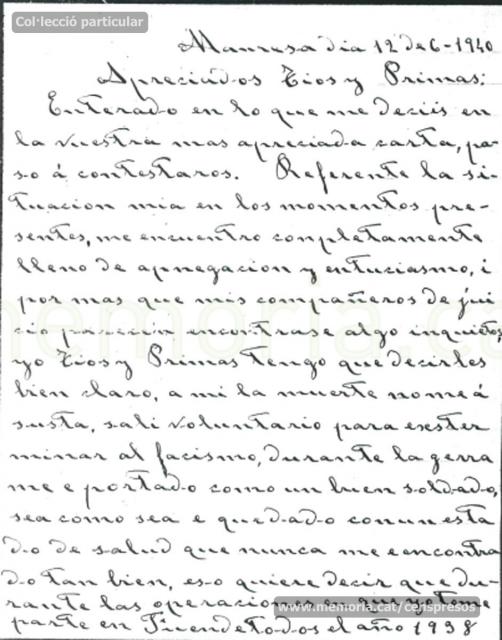 Col·lecció particular
Manresa dia 12 de 6-1940
Apreciados Tios y Primas:
Enterado en lo que me deciis en
la vuestra mas apreciada carta, pa-
so á contestaros. Referente la si-
tuacion mia en los momentos pre-
sentes, me encuentro completamente
lleno de apnegacion y entuciasmo, i
por mas que mis compañeros de jui
cio parecian encontrase algo inquietos,
yo Tios y Primas tengo que decirles
bien claro, a mi la muerte no me á
susta, sali voluntario para exster
minar al facismo, durante la gerra
me e portado como un buen soldado,
sea como sea e quedado con un esta
do de salud que nunca me e encontra
do tan bien, eso quiere decir que du-
rante las operaciones en que yo tome
parte en Fuendetodos el año 1938
www.memoria.cat/cerispresos
memoria.cat